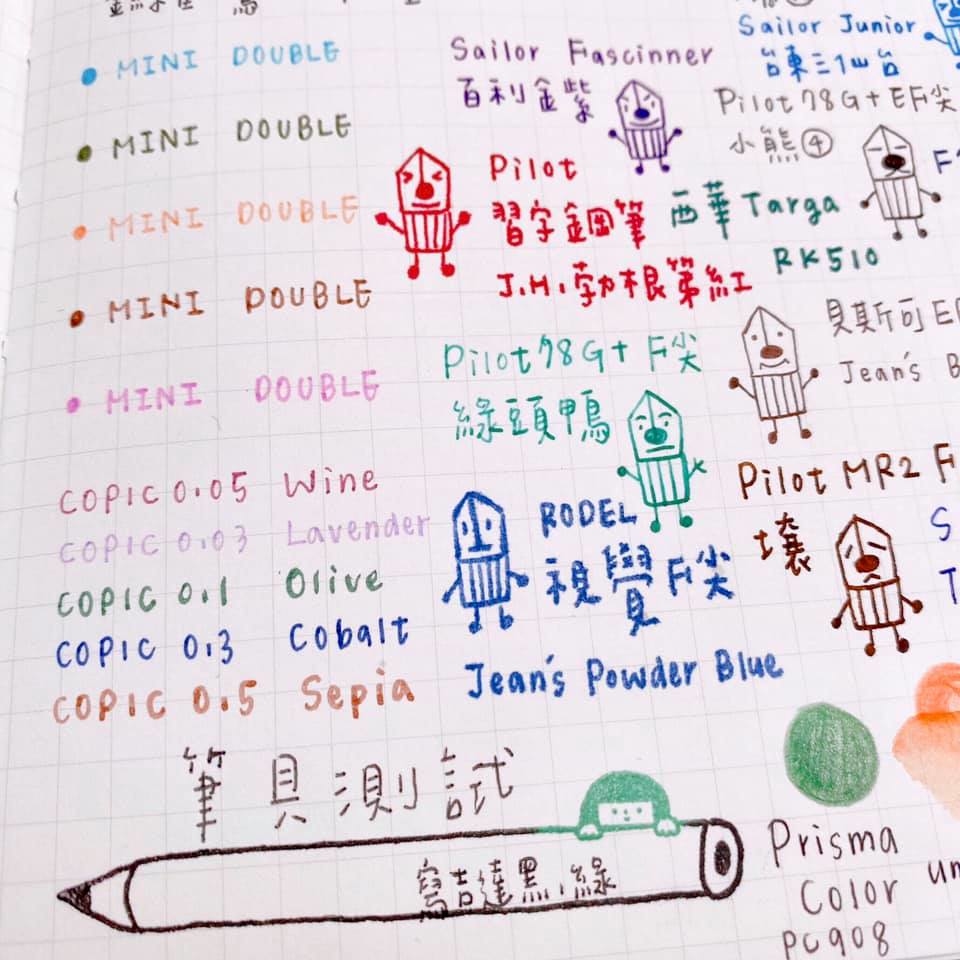 MINI DOUBLE
MINI DOUBLE
MINI DOUBLE
MINI DOUBLE
MINI DOUBLE
COPIC 0.05 Wine
COPIC 0.03 Lavender
COPIC 0.1 Olive
COPIC 0.3 Cobalt
COPIC 0.5 Sepia
Sailor Fascinner
百利金紫
Pilot
習字鋼筆
J.H.勃根第紅
Pilot78G+ F尖
綠頭鴨
RODEL
視覺F尖
Jean's Powder Blue
Sailor Junior
台東三仙台
Pilot78G+EF尖
小熊④
西華Targa
RK510
貝斯可E
Jean's B
Pilot MR2 F
壤
筆具測試
寫吉達黑.綠
Prisma
Color
PC908